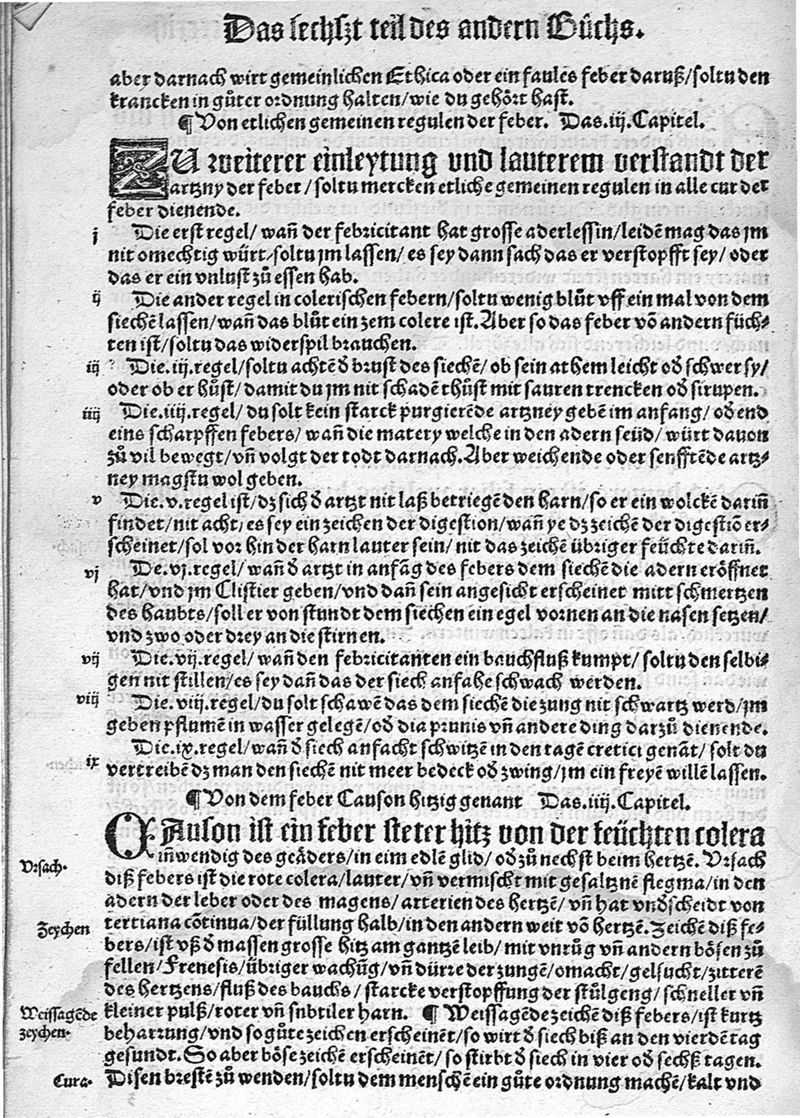 Das sechszt teil des andern Bůchs.
aber darnach wirt gemeinlichen Ethica oder ein faules feber daruß/soltu den
krancken in gůter ordnung halten/wie du gehört hast.
¶ Von etlichen gemeinen regulen der feber. Das.iij.Capitel.
ZU weiterer einleytung und lauterem verstandt der
artzny der feber/soltu mercken etliche gemeinen regulen in alle cur der
feber dienende.
j Die erst regel/wañ der febricitant hat grosse aderlessin/leidẽ mag das jm
nit omechtig würt/soltu jm lassen/es sey dann sach das er verstopfft sey/oder
das er ein vnlust zů essen hab.
ij Die ander regel in colerischen febern/soltu wenig blůt vff ein mal von dem
siechẽ lassen/wañ das blůt ein zem colere ist. Aber so das feber võ andern füch-
ten ist/soltu das widerspil brauchen.
iij Die.iij.regel/soltu achtẽ ð brust des siechẽ/ob sein athem leicht oð schwer sy/
oder ob er hůst/damit du jm nit schadẽ thůst mit sauren trencken oð sirupen.
iiij Die.iiij.regel/du solt kein starck purgierẽde artzney gebẽ im anfang/oð end
eins scharpffen febers/wañ die matery welche in den adern seüd/würt dauon
zů vil bewegt/vñ volgt der todt darnach. Aber weichende oder senfftẽde artz-
ney magstu wol geben.
v Die.v.regel ist/dz sich ð artzt nit laß betriegẽ den harn/so er ein wolckẽ dariñ
findet/nit acht/es sey ein zeichen der digestion/wañ ye dz zeichẽ der digestiõ er-
scheinet/sol vor hin der harn lauter sein/nit das zeichẽ übriger feüchte dariñ.
vj De.vj.regel/wañ ð artzt in anfãg des febers dem siechẽ die adern eröffnet
hat/vnd jm Clistier geben/vnd dañ sein angesicht erscheinet mitt schmertzen
des haubts/soll er von stundt dem siechen ein egel vornen an die nasen setzen/
vnd zwo oder drey an die stirnen.
vij Die.vij.regel/wañ den febricitanten ein bauchfluß kumpt/soltu den selbi-
gen nit stillen/es sey dañ das der siech anfahe schwach werden.
viij Die.viij.regel/du solt schawẽ das dem siechẽ die zung nit schwartz werd/jm
geben pflumẽ in wasser gelegẽ/oð dia prunis vñ andere ding darzů dienende.
ix Die.ix.regel/wañ ð siech anfacht schwitzẽ in den tagẽ cretici genãt/solt du
vertreibẽ dz man den siechẽ nit meer bedeck oð zwing/jm ein freyẽ willẽ lassen.
¶ Von dem feber Causon hitzig genant Das.iiij.Capitel.
CAuson ist ein feber steter hitz von der feüchten colera
iñwendig des geäders/in eim edlẽ glid/oð zů nechst beim hertzẽ. Vrsach
Vrsach.
diß febers ist die rote colera/lauter/vñ vermischt mit gesaltznẽ flegma/in den
adern der leber oder des magens/arterien des hertzẽ/vñ hat vndscheidt von
tertiana cõtinua/der füllung halb/in den andern weit võ hertzẽ. Zeichẽ diß fe-
Zeychen
bers/ist vß ð massen grosse hitz am gantzẽ leib/mit vnrůg vñ andern bösen zů
fellen/Frenesis/übriger wachũg/vñ dürre der zungẽ/omacht/gelsucht/zitterẽ
des hertzens/fluß des bauchs/starcke verstopffung der stůlgeng/schneller vñ
kleiner pulß/roter vñ snbtiler harn. ¶ Weissagẽde zeichẽ diß febers/ist kurtz
Weissagẽde
zeychen.
beharrung/vnd so gůte zeichen erscheinẽt/so wirt ð siech biß an den vierdẽ tag
gesundt. So aber böse zeichẽ erscheinẽt/so stirbt ð siech in vier oð sechß tagen.
Cura. Disen brestẽ zů wenden/soltu dem menschẽ ein gůte ordnung machẽ/kalt vnd